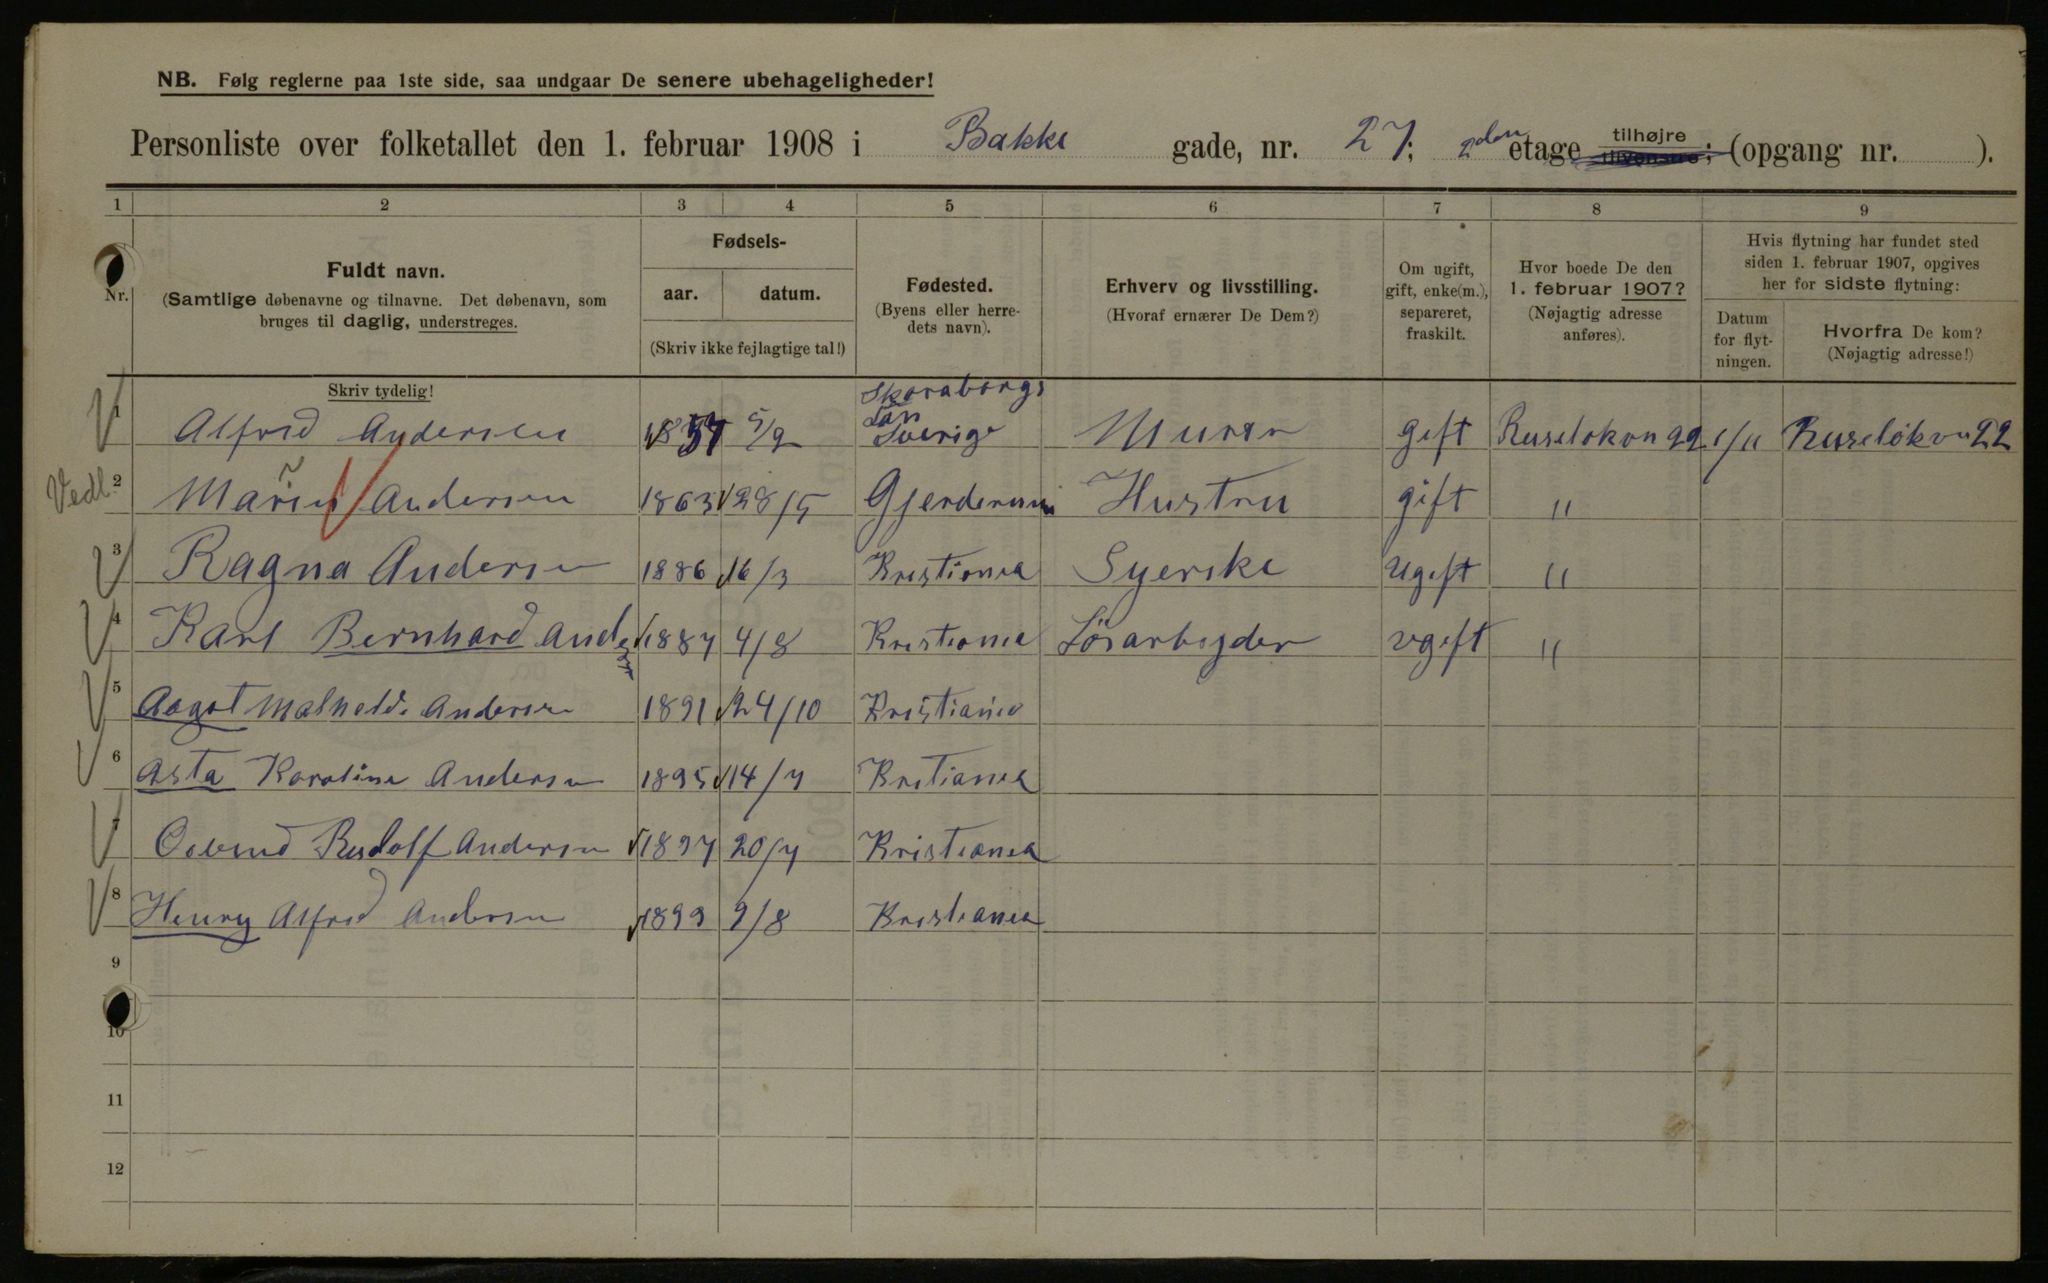 NB. Følg reglerne paa 1ste side, saa undgaar De senere ubehageligheder!
Personliste over folketallet den 1. februar 1908 i Bakke gade, nr. 27; 2den etage tilhøjre tilvenstre; (opgang nr. ).
1 2 3 4 5 6 7 8 9
Nr.
Fuldt navn.
(Samtlige døbenavne og tilnavne. Det døbenavn, som
bruges til daglig, understreges.
Skriv tydelig!
Fødsels-
aar. datum.
(Skriv ikke fejlagtige tal!)
Fødested.
(Byens eller herre-
dets navn).
Erhverv og livsstilling.
(Hvoraf ernærer De Dem?)
Om ugift,
gift, enke(m.),
separeret,
fraskilt.
Hvor boede De den
1. februar 1907?
(Nøjagtig adresse
anføres).
Hvis flytning har fundet sted
siden 1. februar 1907, opgives
her for sidste flytning:
Datum
for flyt-
ningen.
Hvorfra De kom?
(Nøjagtig adresse!)
Skaraborgs
Län
1 Alfred Andersen 1857 5/9 Sverige Murer gift Ruseløkvn 22 1/11 Ruseløkvn 22
Vedl. 2 Marie Andersen 1863 28/5 Gjerderum Hustru gift "
3 Ragna Andersen 1886 16/3 Kristiania Syerske ugift "
4 Karl Bernhard Andersen 1887 4/8 Kristiania Løsarbejder ugift "
5 Aagot Mathilde Andersen 1891 24/10 Kristiania
6 Asta Karoline Andersen 1895 14/7 Kristiania
7 Rudolf Andersen 1897 20/7 Kristiania
8 Henry Alfred Andersen 1899 9/8 Kristiania
9
10
11
12